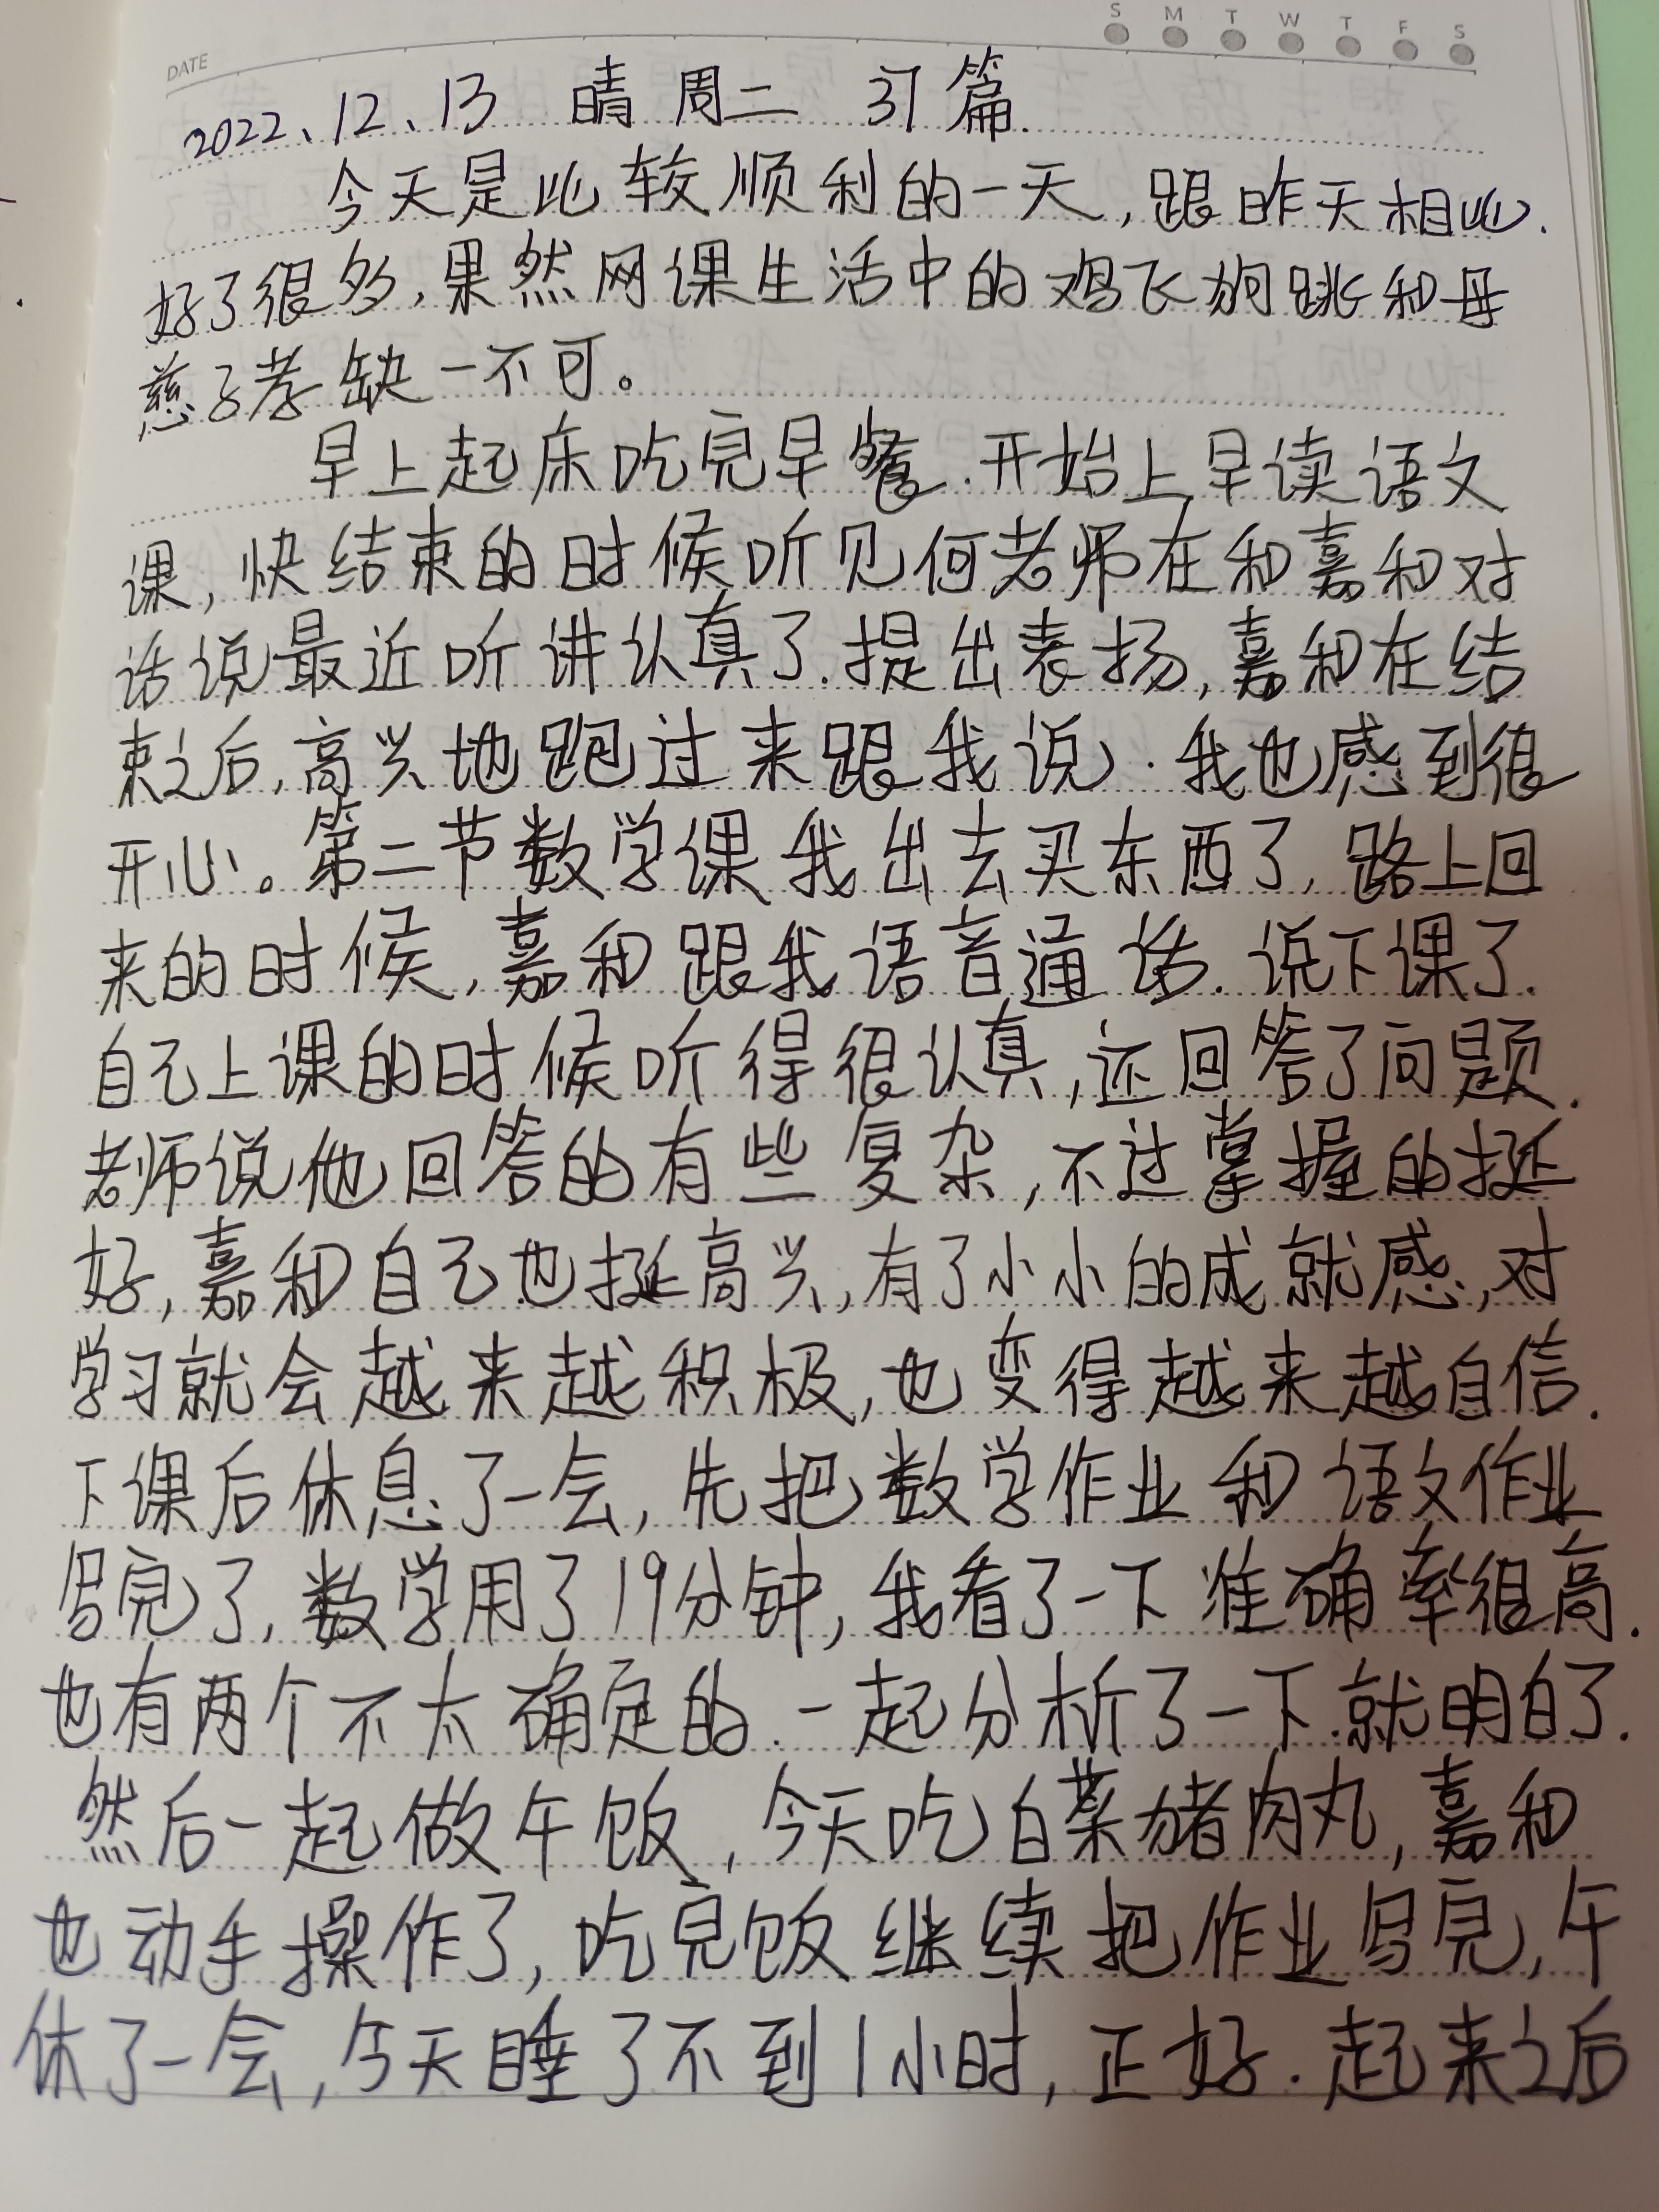 S M T W T F S
DATE
2022、12、13 晴 周二 37篇.
今天是比较顺利的一天,跟昨天相比.
好了很多,果然网课生活中的鸡飞狗跳和母
慈子孝缺一不可。
早上起床吃完早餐.开始上早读语文
课,快结束的时候听见何老师在和嘉和对
话说最近听讲认真了.提出表扬,嘉和在结
束之后,高兴地跑过来跟我说.我也感到很
开心。第二节数学课我出去买东西了,路上回
来的时候,嘉和跟我语音通话.说下课了.
自己上课的时候听得很认真,还回答了问题.
老师说他回答的有些复杂,不过掌握的挺
好,嘉和自己也挺高兴,有了小小的成就感,对
学习就会越来越积极,也变得越来越自信.
下课后休息了一会,先把数学作业和语文作业
写完了,数学用了19分钟,我看了一下准确率很高.
也有两个不太确定的.一起分析了一下.就明白了.
然后一起做午饭,今天吃白菜猪肉丸,嘉和
也动手操作了,吃完饭继续把作业写完,午
休了一会,今天睡了不到1小时,正好.起来之后